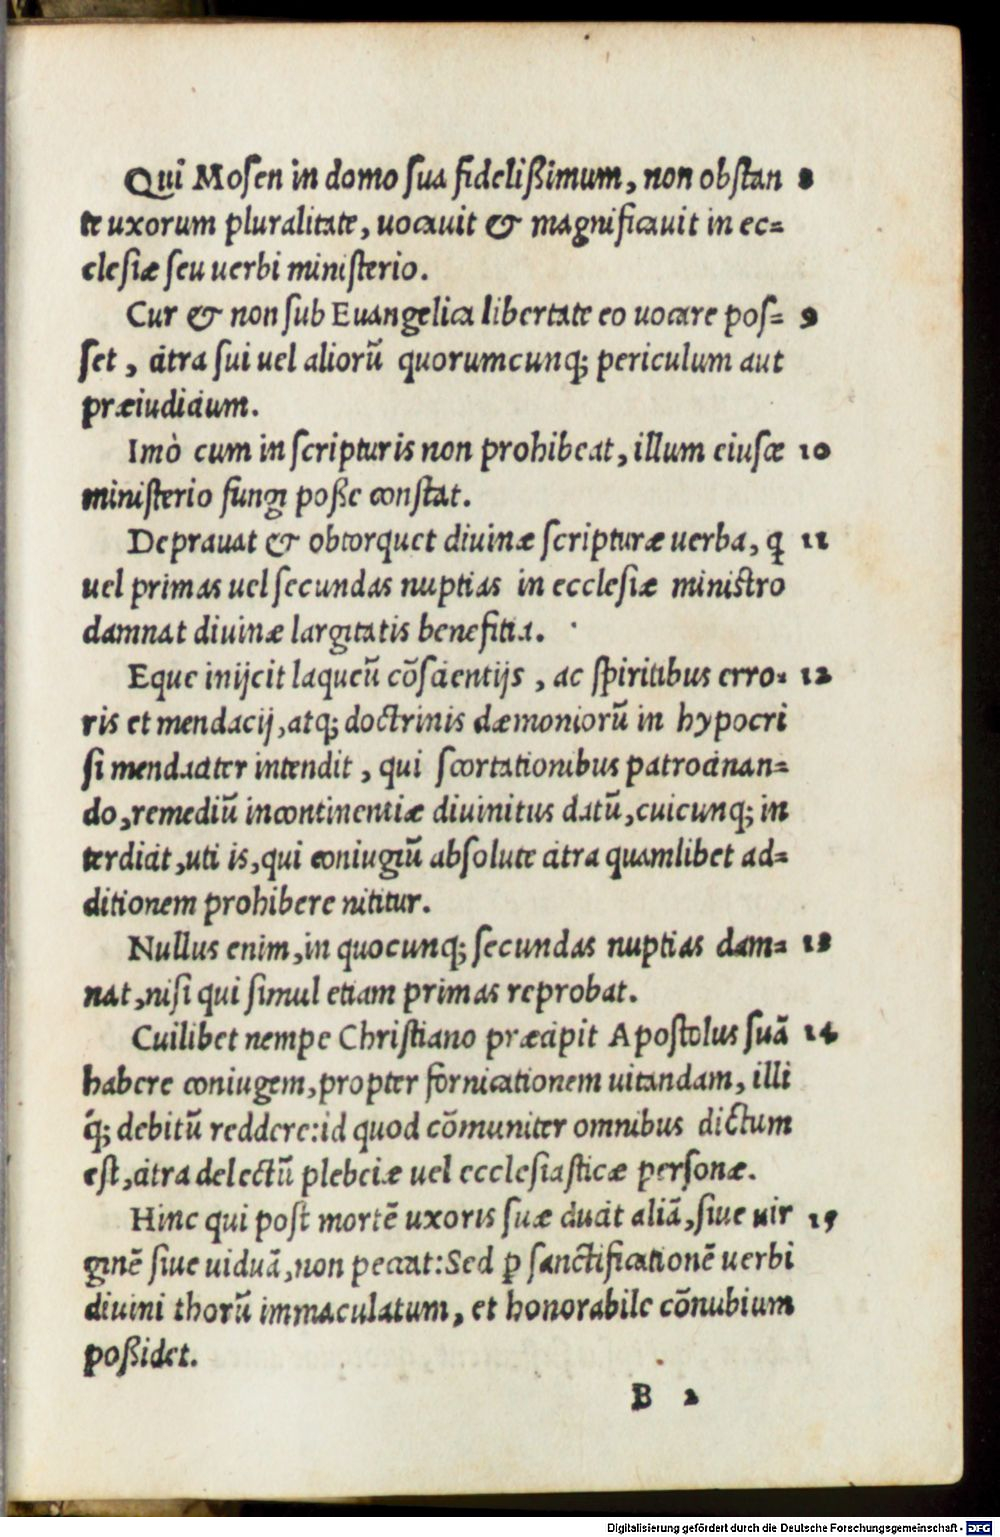 Qui Mosen in domo sua fidelißimum, non obstan 8
te uxorum pluralitate, uocauit & magnificauit in ec=
clesiæ seu uerbi ministerio.
Cur & non sub Euangelica libertate eo uocare pos= 9
set, citra sui uel aliorũ quorumcunq; periculum aut
præiudicium.
Imò cum in scripturis non prohibeat, illum eiuscæ 10
ministerio fungi poße constat.
Deprauat & obtorquet diuinæ scripturæ uerba, q 11
uel primas uel secundas nuptias in ecclesiæ ministro
damnat diuinæ largitatis benefitia.
Eque inijcit laqueũ cõscientijs, ac spiritibus erro= 12
ris et mendacij, atq; doctrinis dæmoniorũ in hypocri
si mendaciter intendit, qui scortationibus patrocinan=
do, remediũ incontinentiæ diuinitus datũ, cuicunq; in
terdicit, uti is, qui coniugiũ absolute citra quamlibet ad=
ditionem prohibere nititur.
Nullus enim, in quocunq; secundas nuptias dam= 13
nat, nisi qui simul etiam primas reprobat.
Cuilibet nempe Christiano præcipit Apostolus suã 14
habere coniugem, propter fornicationem uitandam, illi
q́; debitũ reddere: id quod cõmuniter omnibus dictum
est, citra delectũ plebeiæ uel ecclesiasticæ personæ.
Hinc qui post mortẽ uxoris suæ ducit aliã, siue uir 15
ginẽ siue uiduã, non peccat: Sed ꝑ sanctificationẽ uerbi
diuini thorũ immaculatum, et honorabile cõnubium
poßidet.
B 2
Digitalisierung gefördert durch die Deutsche Forschungsgemeinschaft - DFG